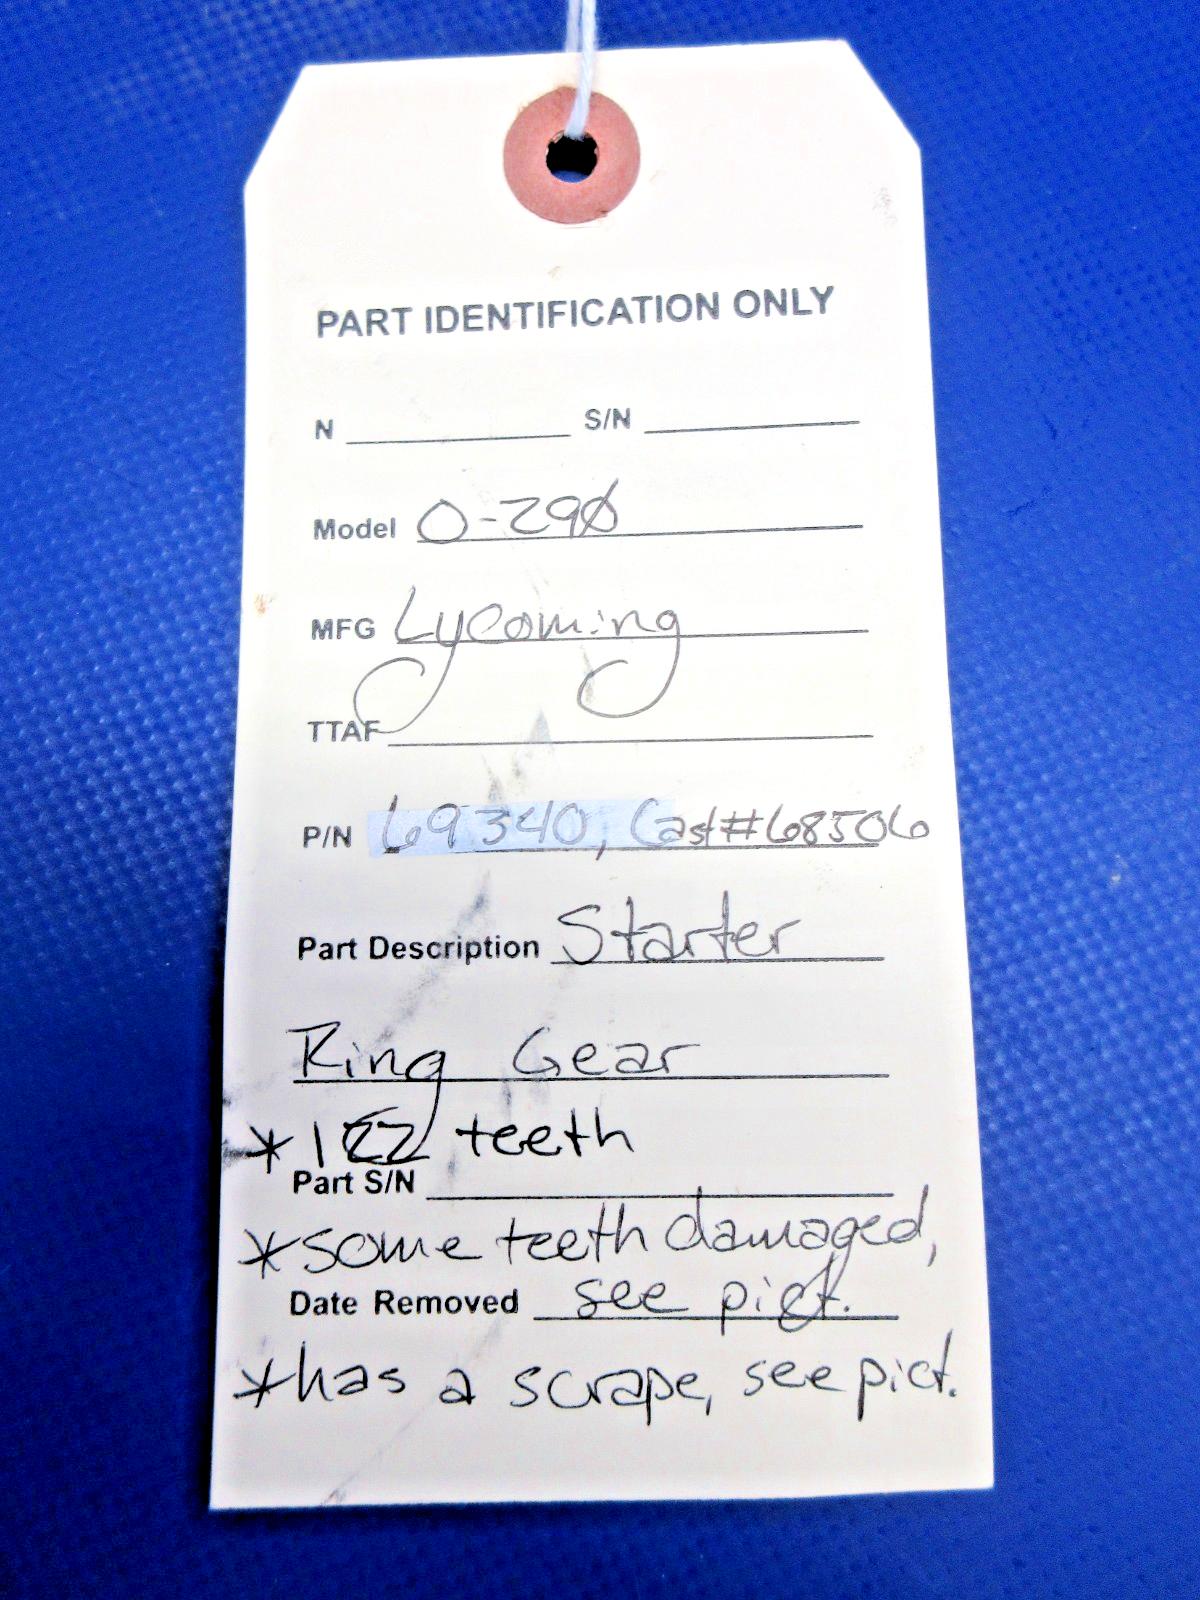 PART IDENTIFICATION ONLY
N S/N
Model O-290
MFG Lycoming
TTAF
P/N 69340, Cast#68506
Part Description Starter
Ring Gear
* 122 teeth
Part S/N
*some teeth damaged,
Date Removed see pict.
*has a scrape, see pict.